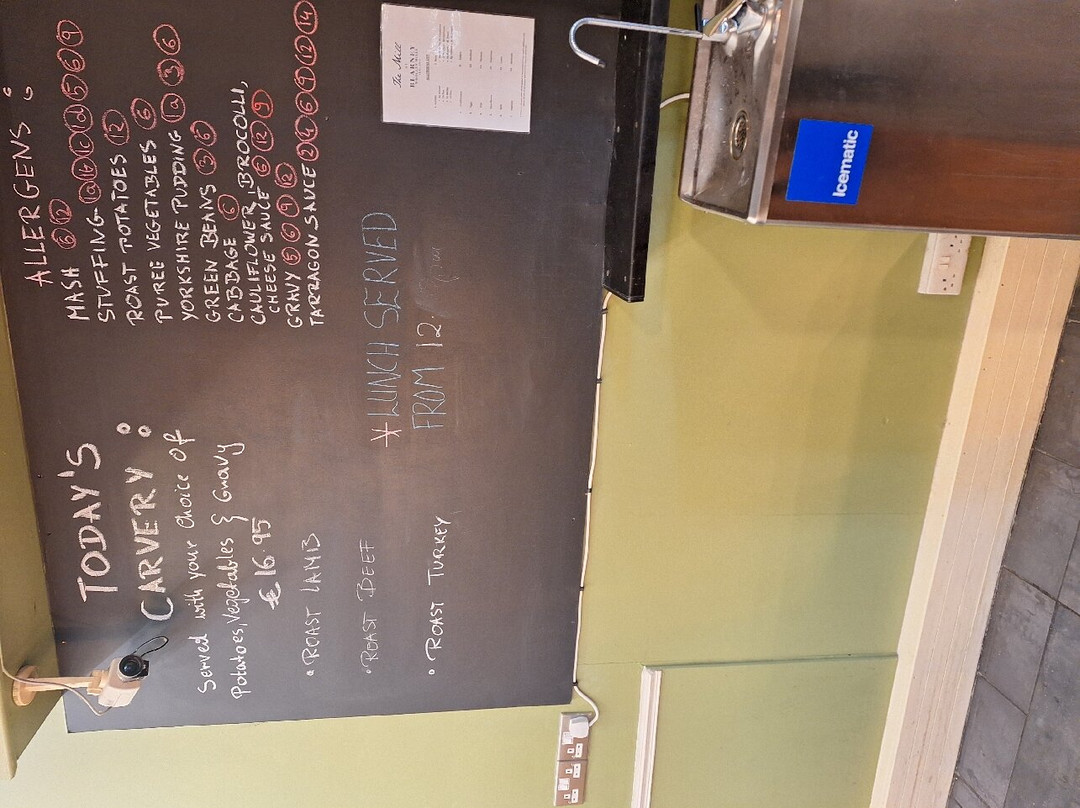 TODAY'S
CARVERY :
Served with your choice of
Potatoes, Vegetables & Gravy
€16.95
• ROAST LAMB
• ROAST BEEF
• ROAST TURKEY
ALLERGENS :
MASH 6 12
STUFFING 1a 1b 1c 1d 5 6 9
ROAST POTATOES 12
PUREE VEGETABLES 6
YORKSHIRE PUDDING 1a 3 6
GREEN BEANS 3 6
CABBAGE 6
CAULIFLOWER, BROCOLLI,
CHEESE SAUCE 6 12 9
GRAVY 5 6 9 12
TARRAGON SAUCE 2 4 6 9 12 14
* LUNCH SERVED
FROM 12.
The Mill
BLARNEY
Icematic